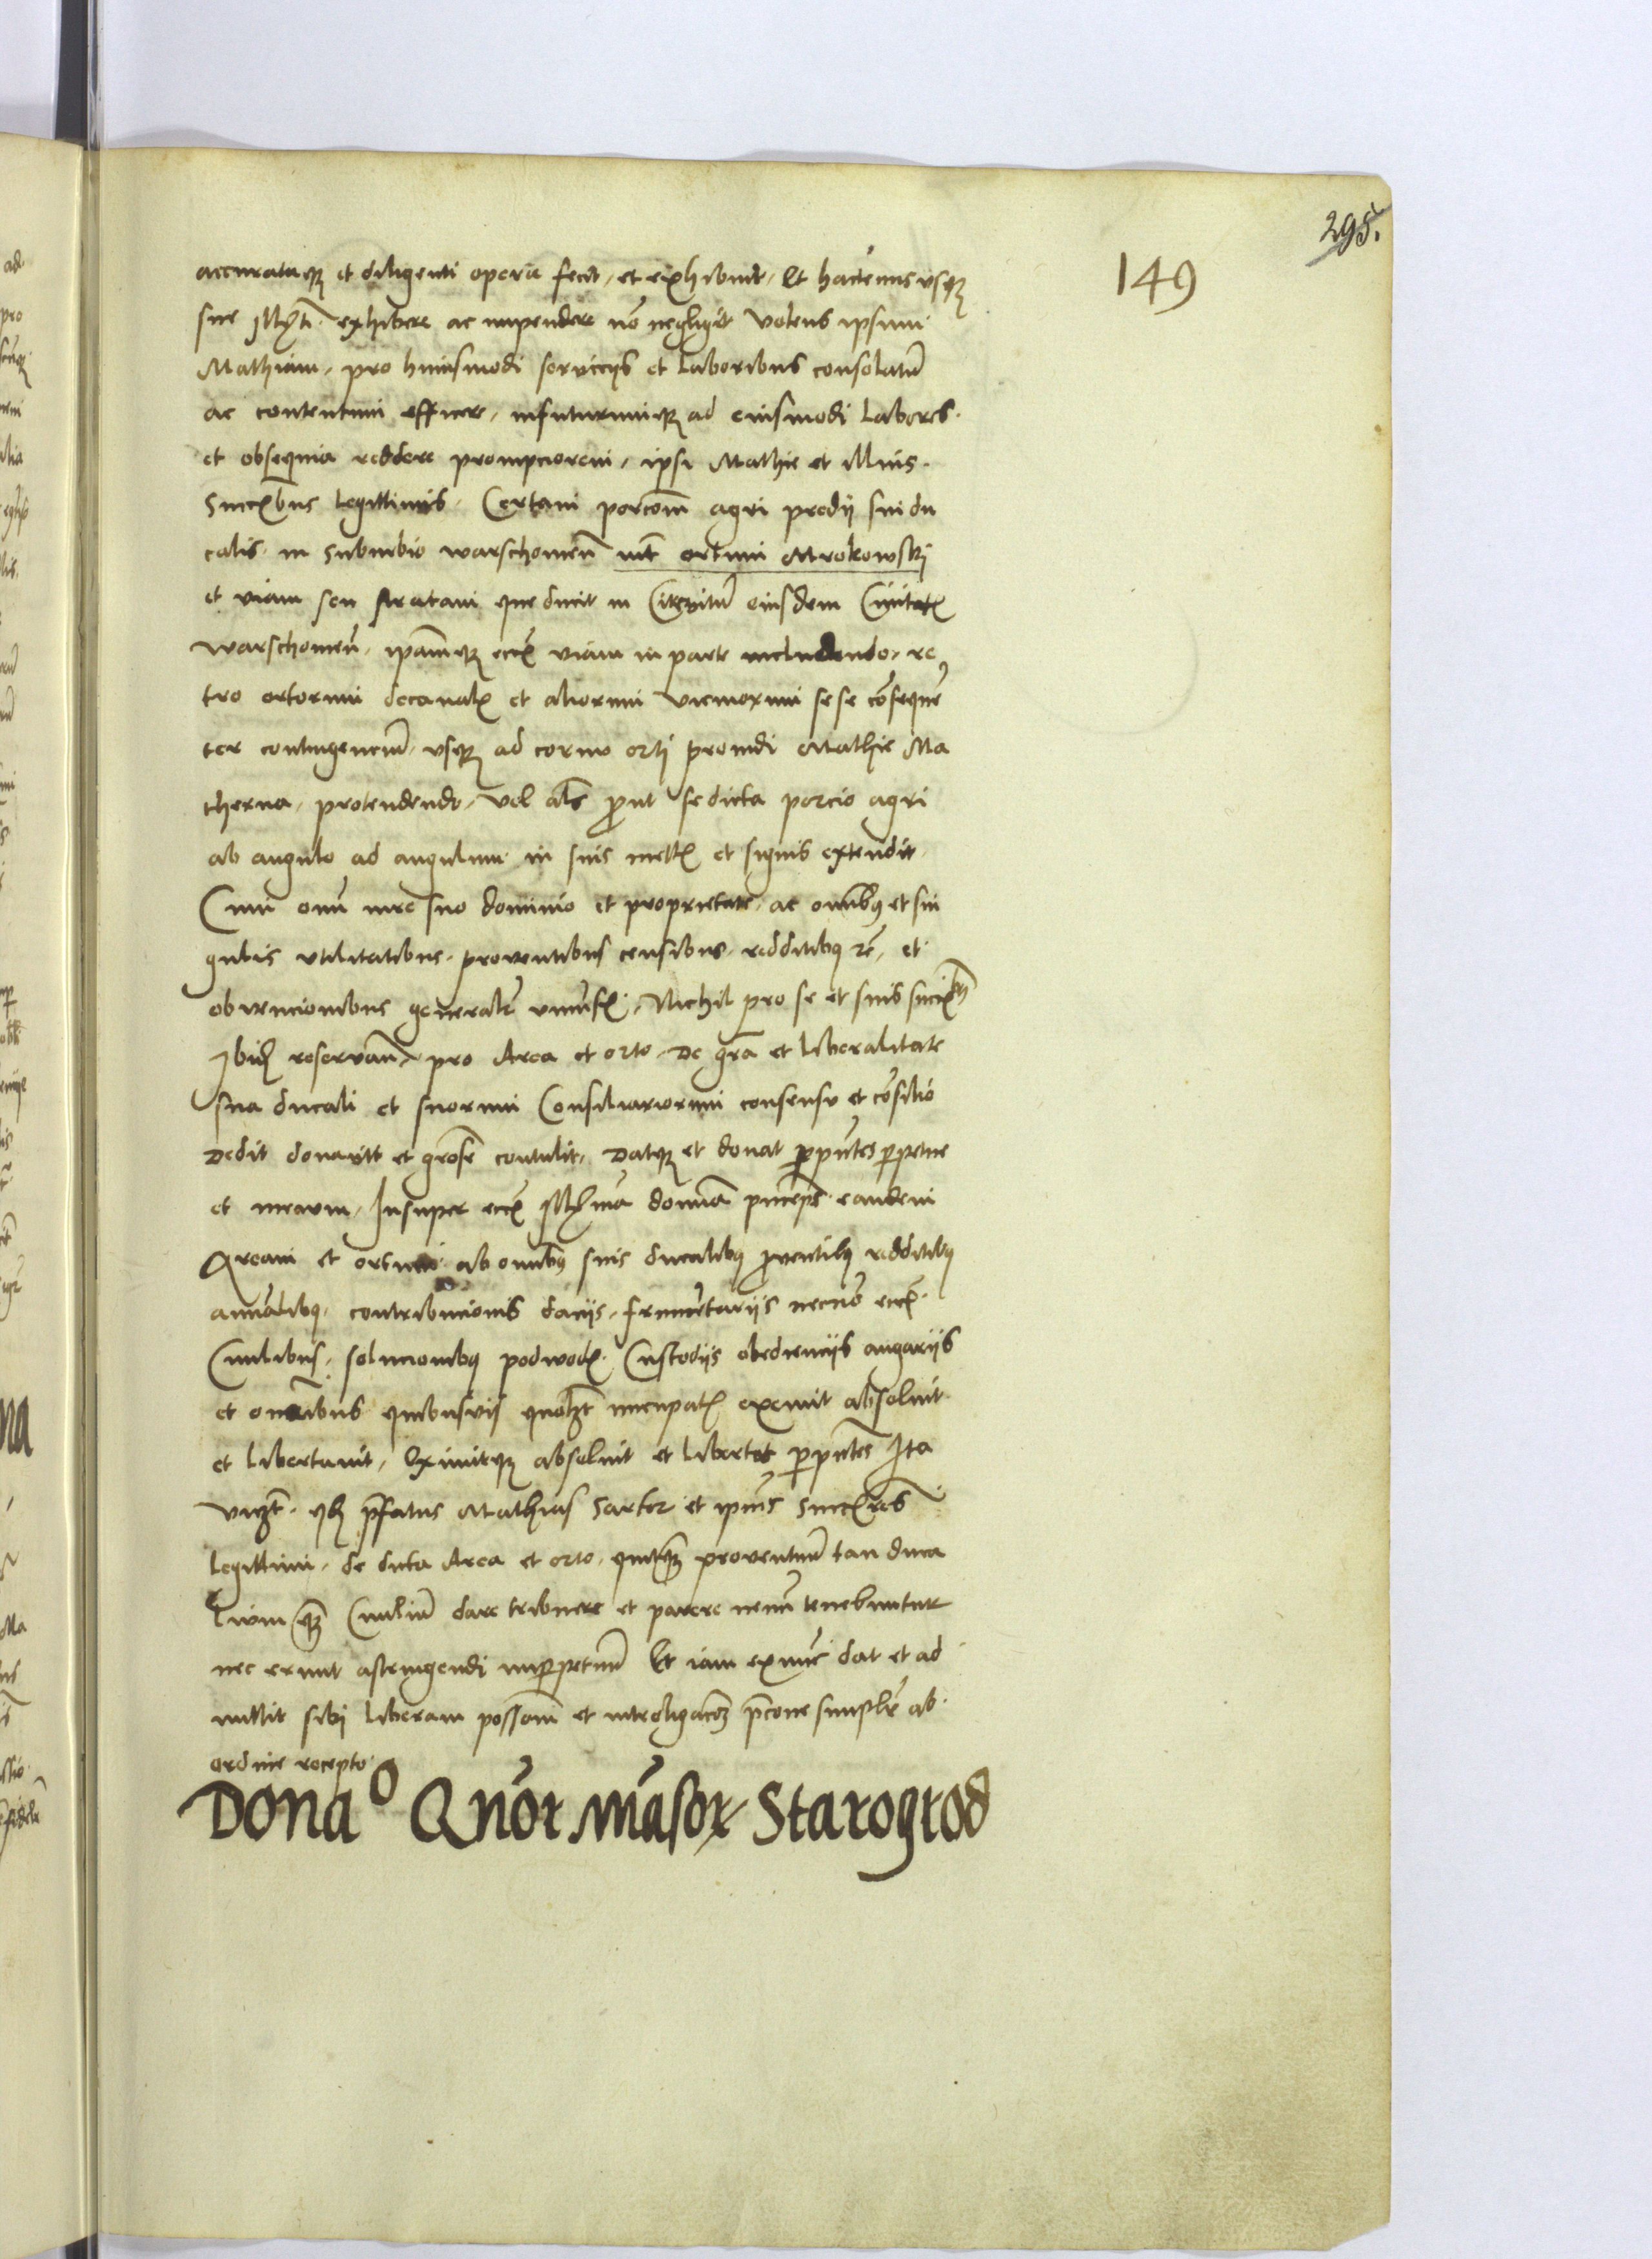 295.
149
accurataque et diligenti opera fecit, et exhibuit, Et hactenus usque
sue Illti exhibere ac impendere no negligit Volens ipsum
Mathiam, pro huiusmodi serviciis et laboribus consolatu
ac contentum efficere, infuturumque ad eiusmodi labores
et obsequia reddere prompciorem, ipsi Mathie et illius
Succibus legittimis. Certam porcom agri predii sui du
calis in suburbio warschowien int ortum Mrokowskj
et viam seu stratam que ducit in eiusdem Civitat
warschowien, ipamque ecc viam in parte includendo, re
tro ortorum decanat et aliorum vicinorum sese cosequen
ter contingenciu usque ad cornu orti providi Mathie Ma
therna, protendendo, vel als prout se dicta porcio agri
ab angulo ad angulum in suis mett et signis extendit
Cum omi iure suo dominio et proprietate, ac omibus et sin
gulis utilitatibus, proventibus censibus, redditibus et
obvencionibus generalr univers, Nichil pro se et suis succ
Ibid reservan, pro Area et orto, de gra et liberalitate
sua ducali et suorum Consiliariorum consensu et cosilio
dedit donavitt et grose contulit, datque et donat pputes perpetue
et inevum, Insuper ecc Illma domina princeps eandem
Aream et ortum ab omibus suis ducalibus proventibus redditibus
annualibus, contribucionis daciis, frumentariis necno ecc
Civilibus, solucionibus podwod, Custodiis obedienciis angariis
et oneribus quibusvis quolzt nuncupat exemit absolvit
et libertavit, Eximitque absolvit et libertat pputes Ita
vidzt, qd prefatus Mathias Sartor et ipius Succres
legittimi, de dicta Area et orto, quitque proventuu tan duca
lium que Civiliu dare tribuere et parere nemi tenebuntur
nec erunt astringendi inperpetuu Et iam exnuc dat et ad
mittit sibi liberam possom et intromgacom precone simplr ab
ordine recepto
Dona⁰ Quor Masor Starogrod